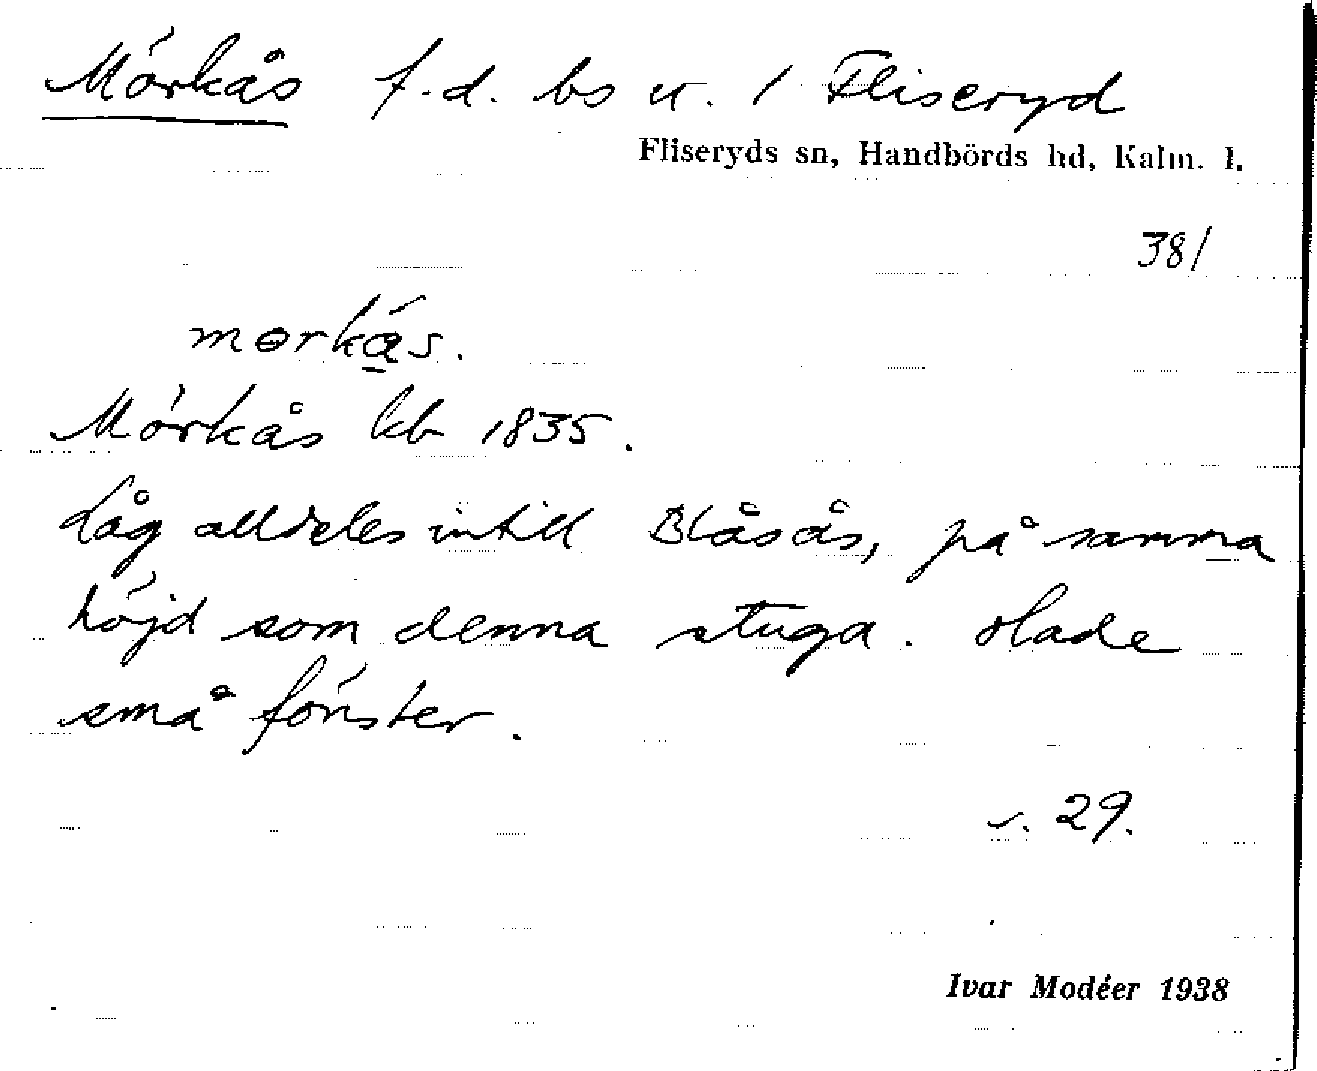 Mörkås f.d. bs u. 1 Fliseryd
Fliseryds sn, Handbörds hd, Kalm. l.
381
mɵrkás.
Mörkås kb 1835.
Låg alldeles intill Blåsås, på samma
höjd som denna stuga. Hade
små fönster.
s. 29.
Ivar Modéer 1938